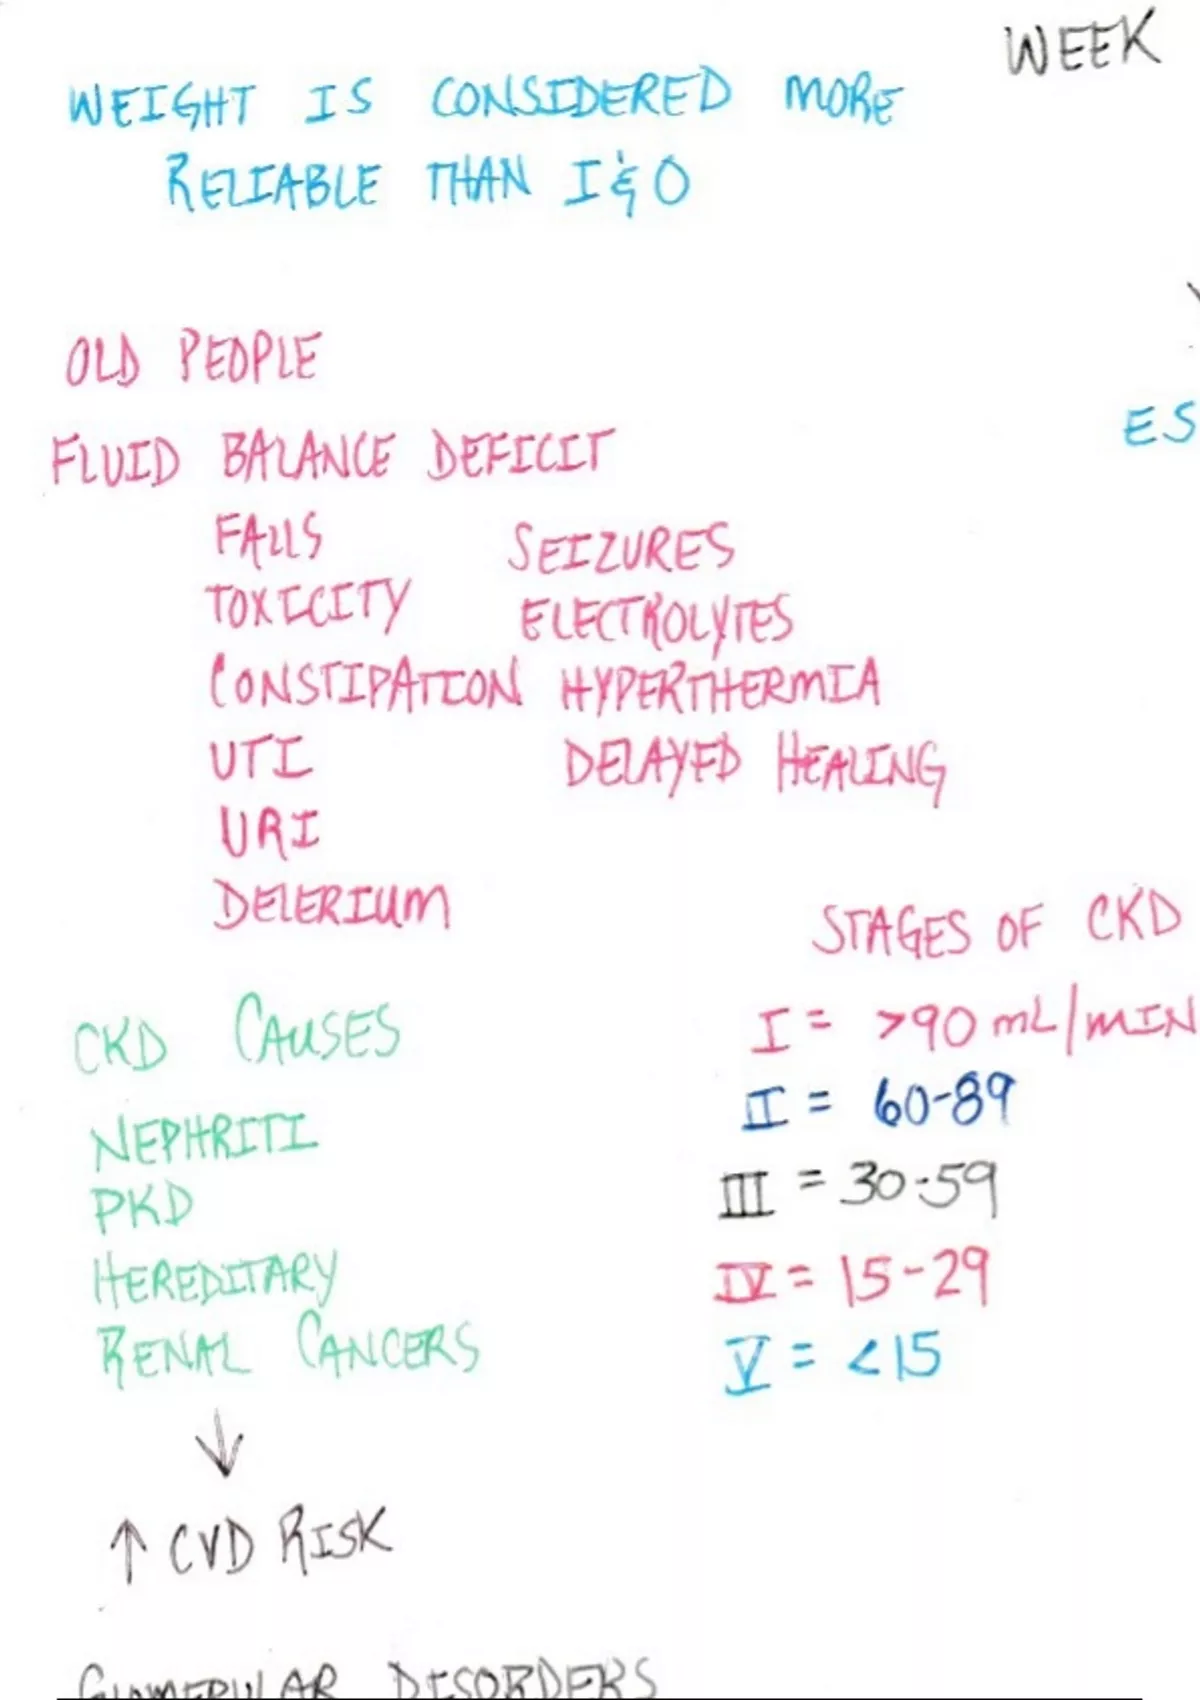 WEEK
WEIGHT IS CONSIDERED MORE
RELIABLE THAN I & O
ES
OLD PEOPLE
FLUID BALANCE DEFICIT
FALLS SEIZURES
TOXICITY ELECTROLYTES
CONSTIPATION HYPERTHERMIA
UTI DELAYED HEALING
URI
DELERIUM
STAGES OF CKD
I = >90 mL/MIN
II = 60-89
III = 30-59
IV = 15-29
V = <15
CKD CAUSES
NEPHRITI
PKD
HEREDITARY
RENAL CANCERS
↓
↑ CVD RISK
GLOMERULAR DISORDERS